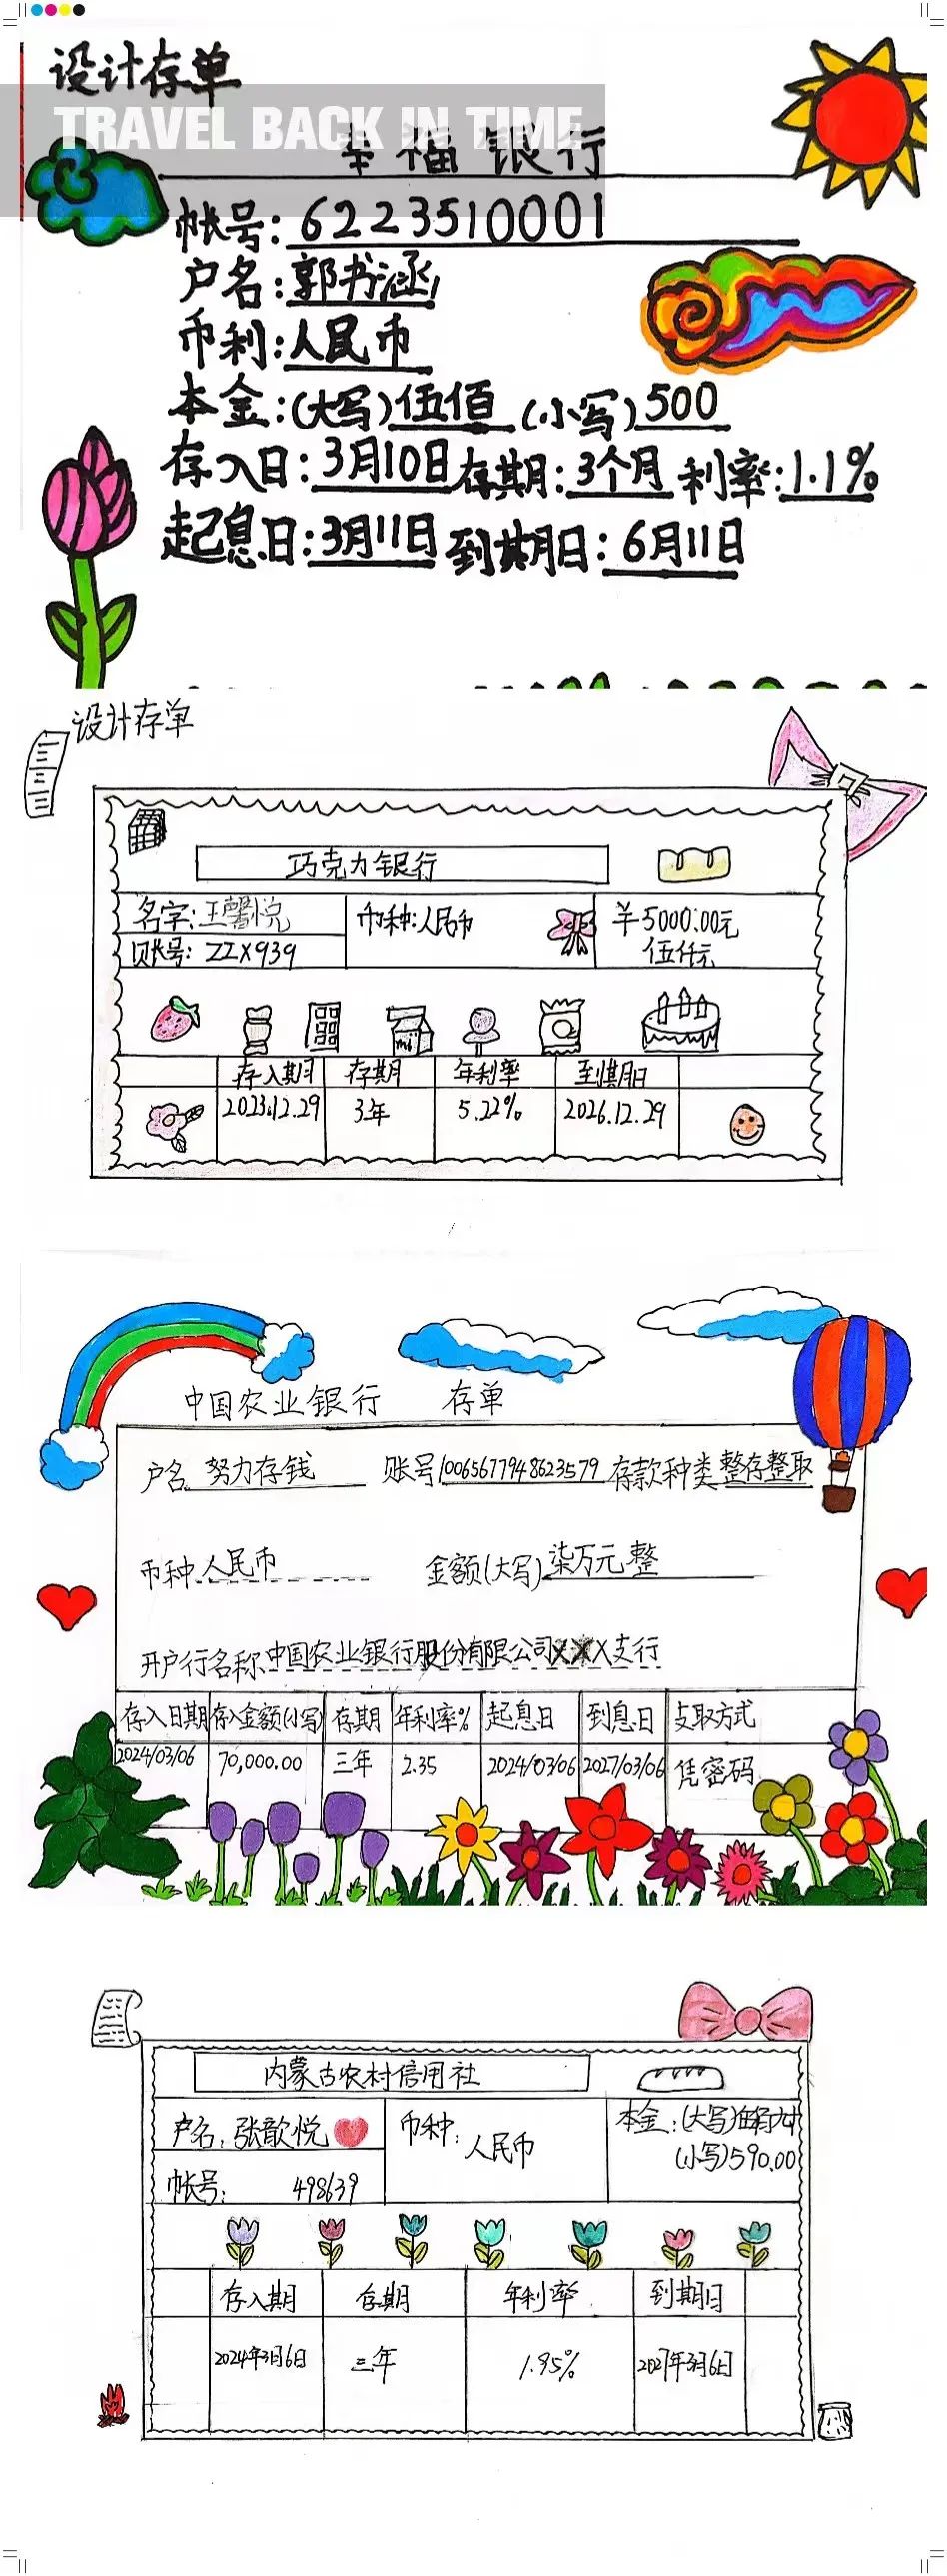 设计存单
TRAVEL BACK IN TIME
幸福银行
帐号: 6223510001
户名: 郭书涵
币利: 人民币
本金: (大写) 伍佰 (小写) 500
存入日: 3月10日 存期: 3个月 利率: 1.1%
起息日: 3月11日 到期日: 6月11日
设计存单
巧克力银行
名字: 王馨悦 币种: 人民币 ¥5000.00元
账号: ZZX939 伍仟元
存入期 存期 年利率 到期日
2023.12.29 3年 5.22% 2026.12.29
中国农业银行 存单
户名 努力存钱 账号 10065677948623579 存款种类 整存整取
币种 人民币 金额(大写) 柒万元整
开户行名称 中国农业银行股份有限公司XXX支行
存入日期 存入金额(小写) 存期 年利率% 起息日 到息日 支取方式
2024/03/06 70,000.00 三年 2.35 2024/03/06 2027/03/06 凭密码
内蒙古农村信用社
户名: 张歆悦 币种: 人民币 本金: (大写)
帐号: 498639 (小写) 590.00
存入期 存期 年利率 到期日
2024年3月6日 三年 1.95% 2027年3月6日